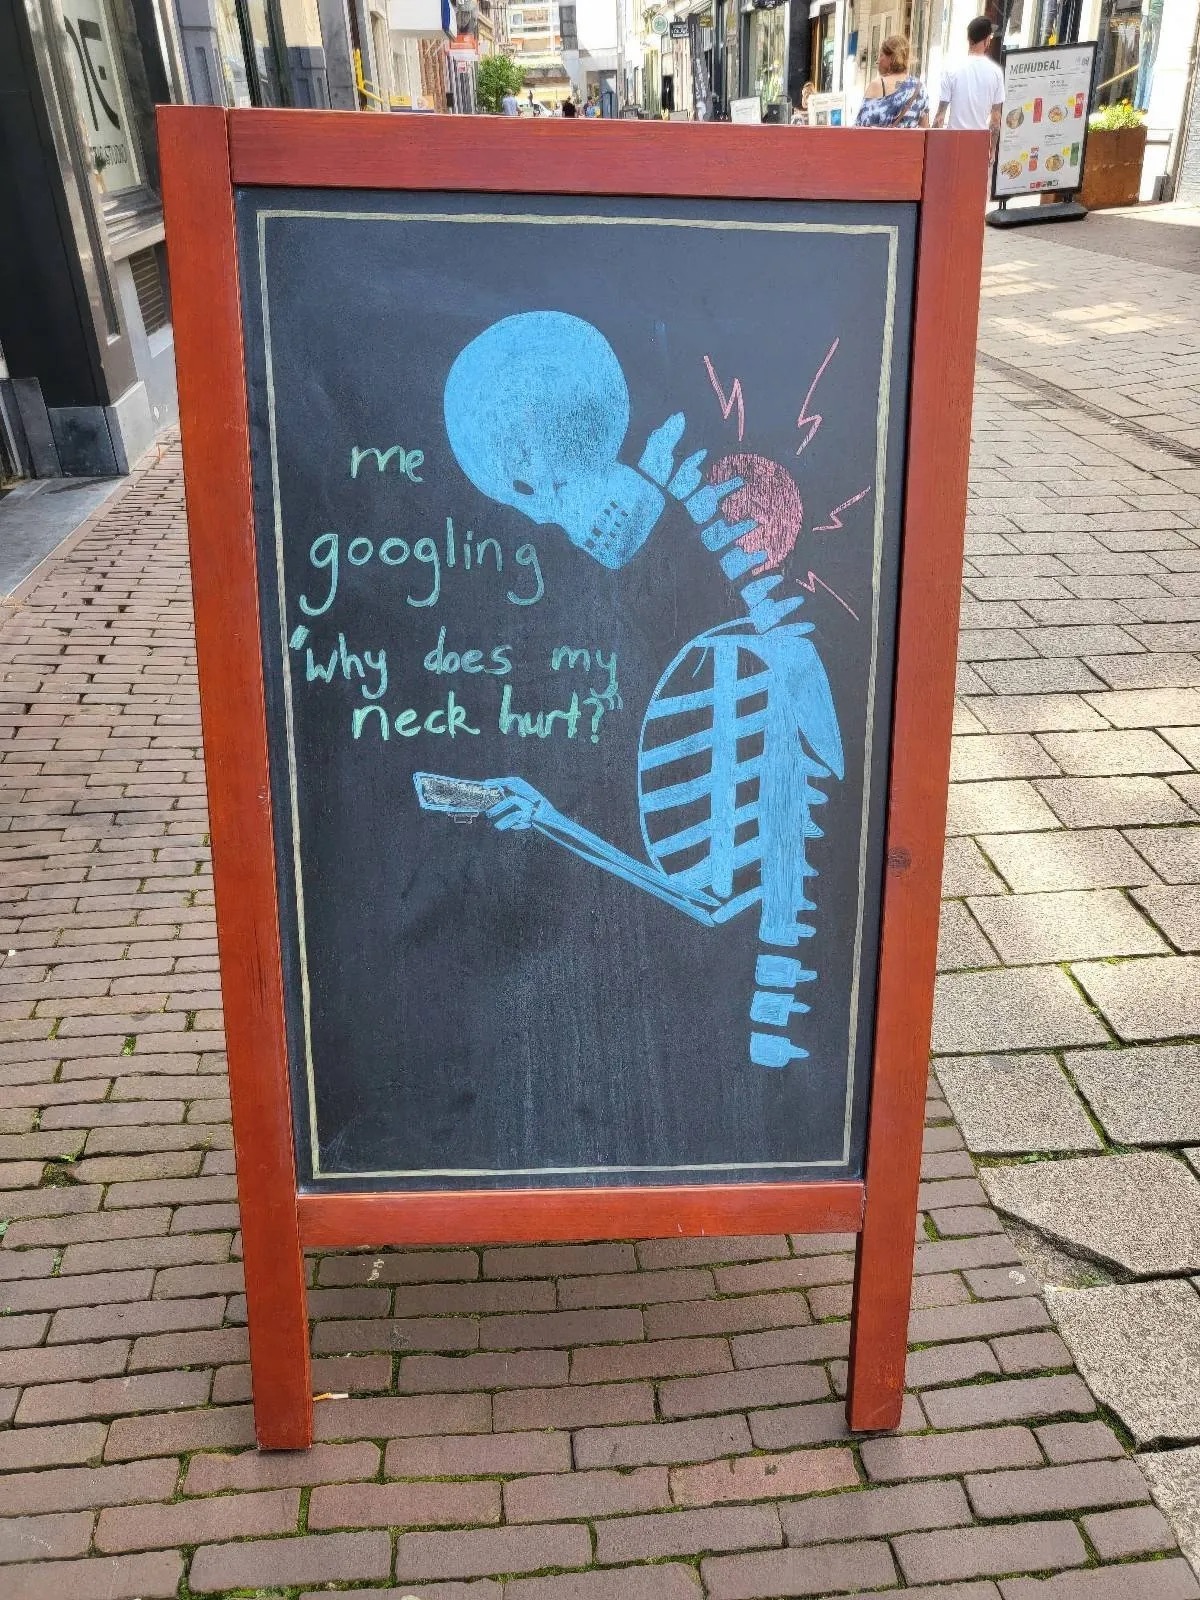 me
googling
"why does my
neck hurt?"
MENUDEAL